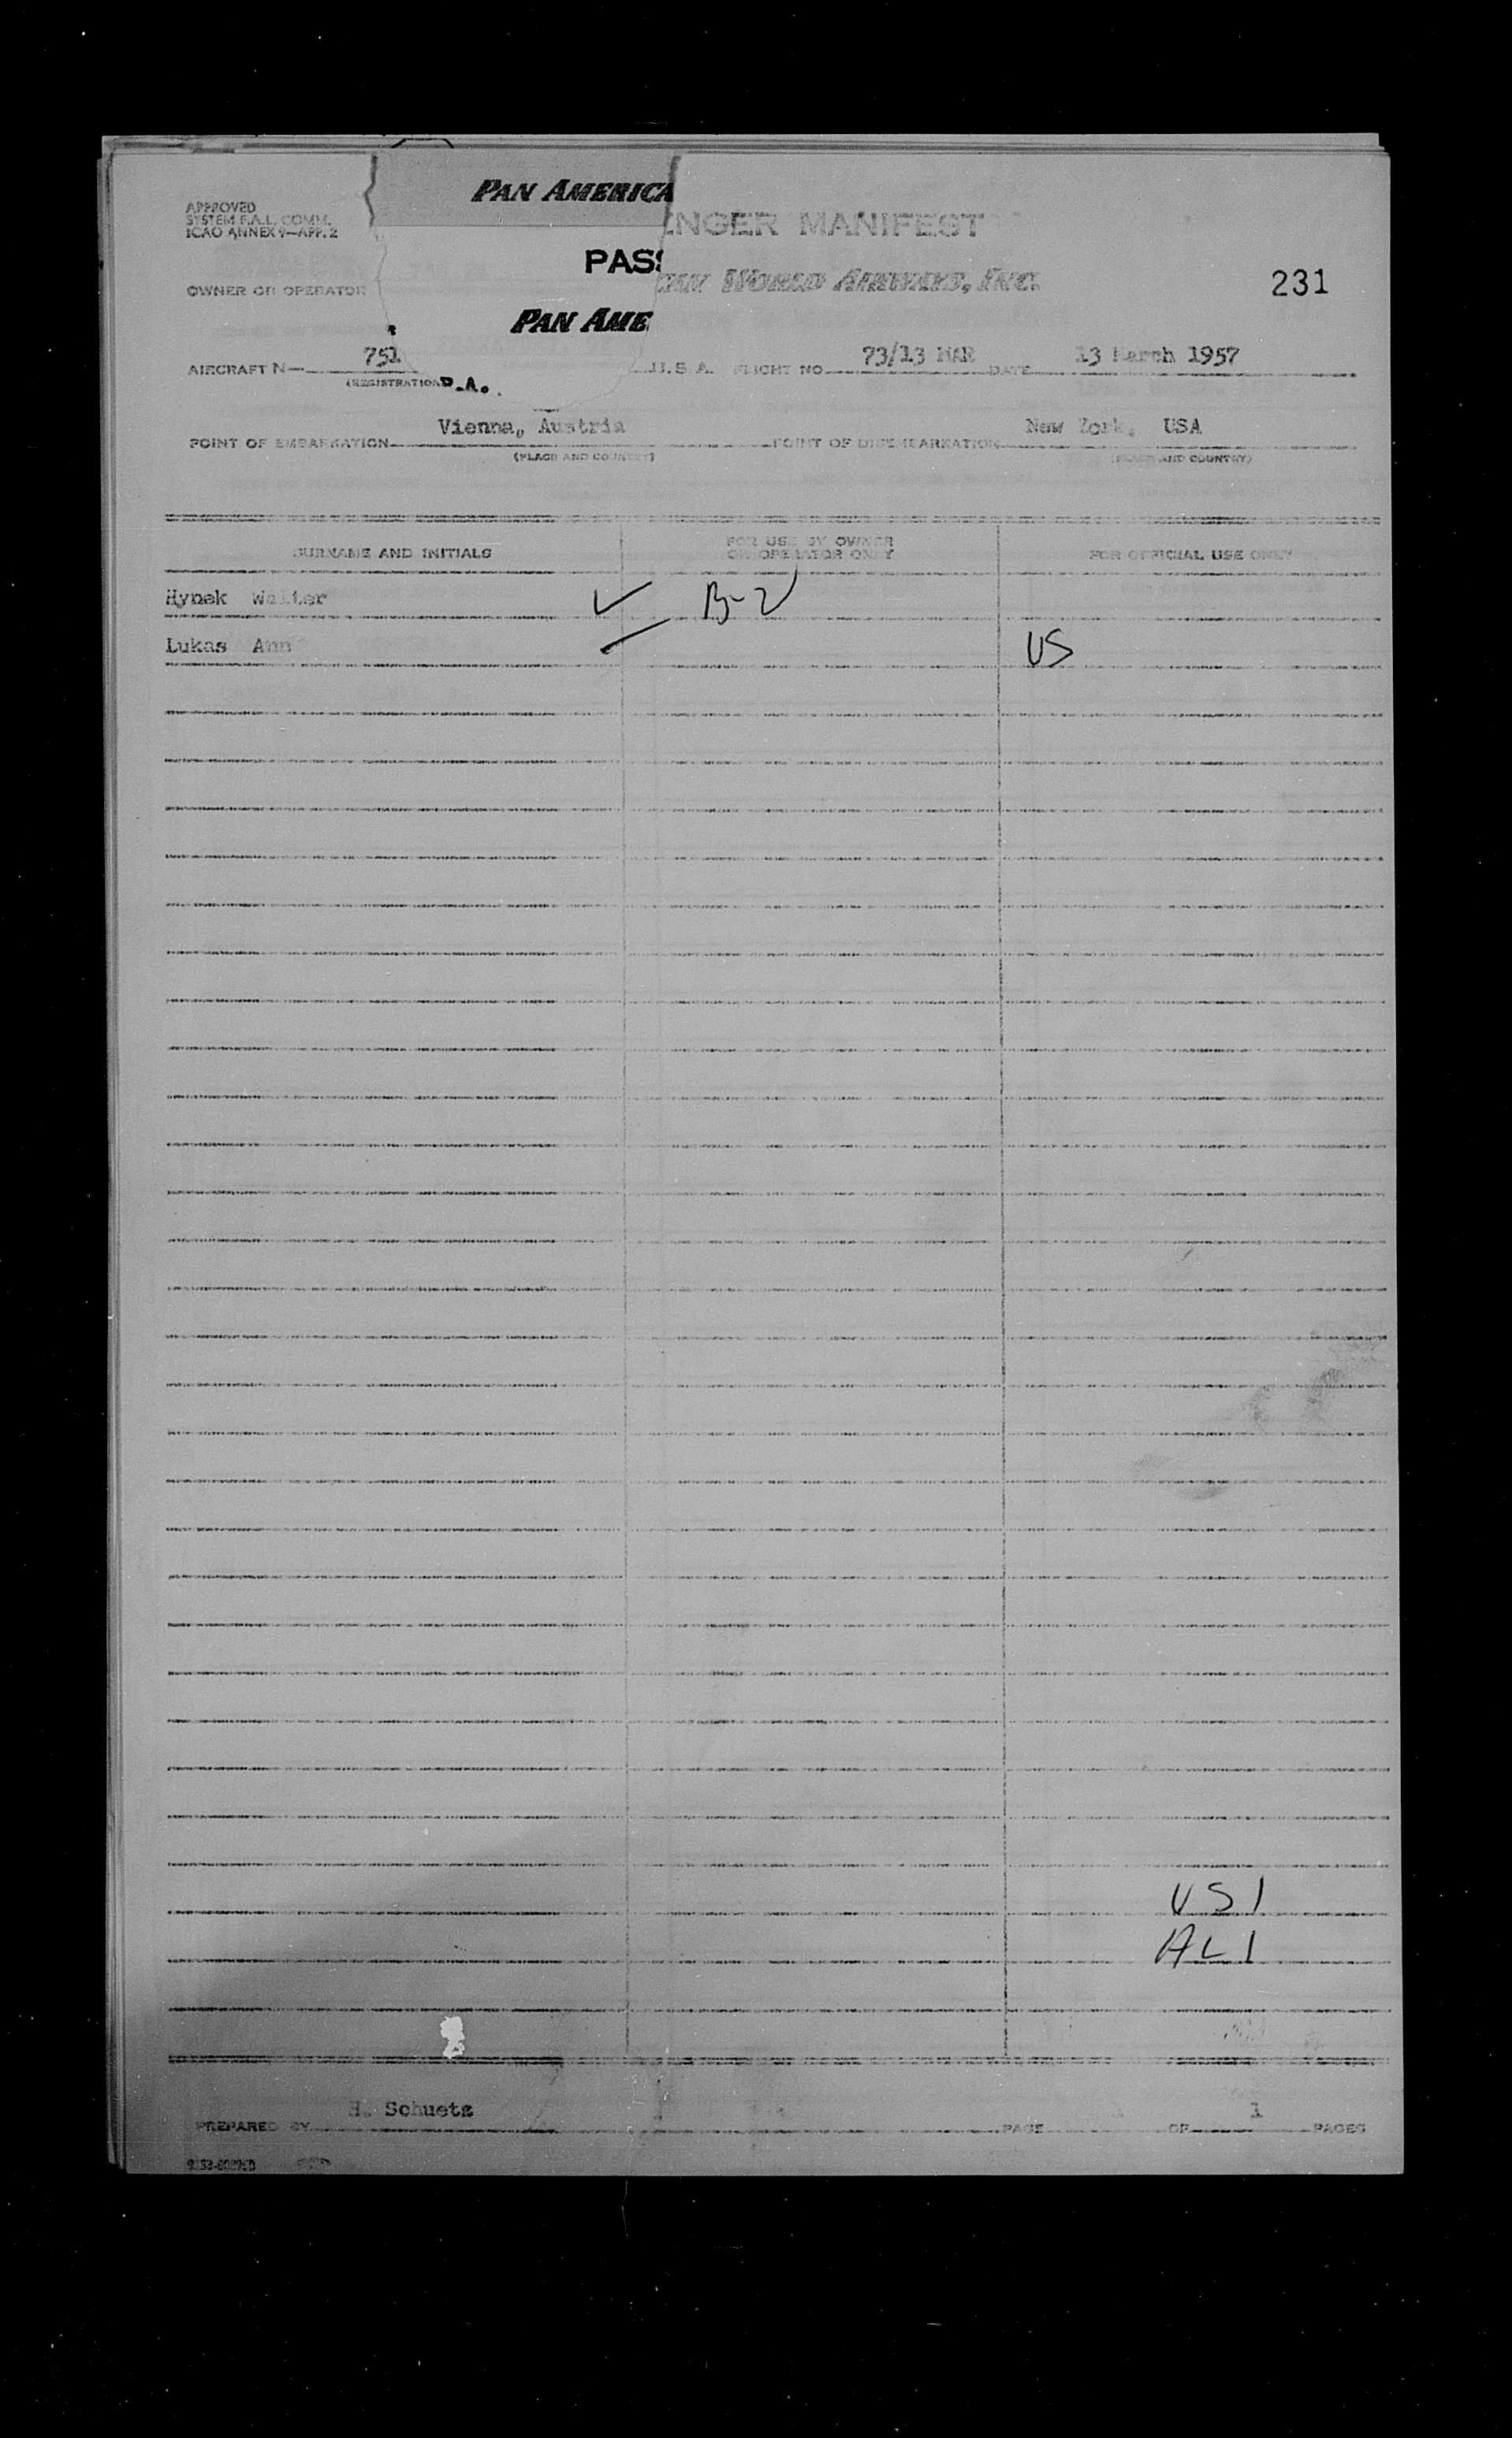 PAN AMERICA
APPROVED
SYSTEM F.A.L. COMM.
ICAO ANNEX 9—APP. 2
ENGER MANIFEST
PASS
OWNER OR OPERATOR
WORLD AIRWAYS, INC.
231
PAN AME
AIRCRAFT N— 751 U.S.A. FLIGHT NO. 73/13 MAR DATE 13 March 1957
(REGISTRATION P.A.
POINT OF EMBARKATION Vienna, Austria POINT OF DISEMBARKATION New York, USA
(PLACE AND COUNTRY) (PLACE AND COUNTRY)
SURNAME AND INITIALS FOR USE BY OWNER OR OPERATOR ONLY FOR OFFICIAL USE ONLY
Hynek Walter B-2
Lukas Ann US
US 1
AL 1
PREPARED BY H. Schuetz PAGE OF 1 PAGES